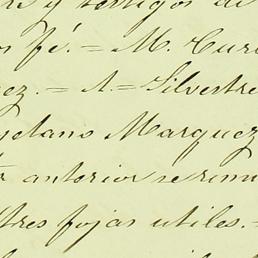 y testigos de
fé.= M. Curi
ez. = A= Silvestre
yetano Marquez
anterior se remi
tres fojas utiles.=